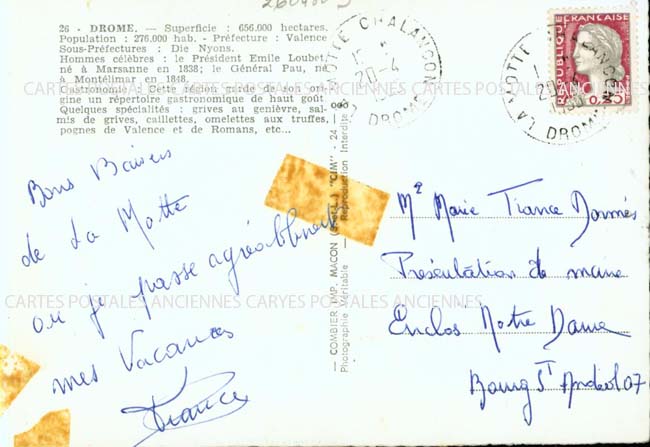 26 - DROME. — Superficie : 656.000 hectares.
Population : 276.000 hab. - Préfecture : Valence
Sous-Préfectures : Die Nyons.
Hommes célèbres : le Président Emile Loubet,
né à Marsanne en 1838; le Général Pau, né
à Montélimar en 1848.
Gastronomie : Cette région garde de son ori-
gine un répertoire gastronomique de haut goût.
Quelques spécialités : grives au genièvre, sal-
mis de grives, caillettes, omelettes aux truffes,
pognes de Valence et de Romans, etc...
Bons Baisers
de La Motte
où je passe agréablement
mes Vacances
France
— COMBIER IMP. MACON "CIM" - 24
Photographie Véritable — Reproduction Interdite
MOTTE CHALANCON
20-4
DROME
REPUBLIQUE FRANÇAISE
0,25
LA MOTTE CHALANCON
DROME
Mle Marie France
Présentation de marie
Enclos Notre Dame
Bourg St Andéol 07
CARTES POSTALES ANCIENNES CARYES POSTALES ANCIENNES
CARTES POSTALES ANCIENNES CARYES POSTALES ANCIENNES